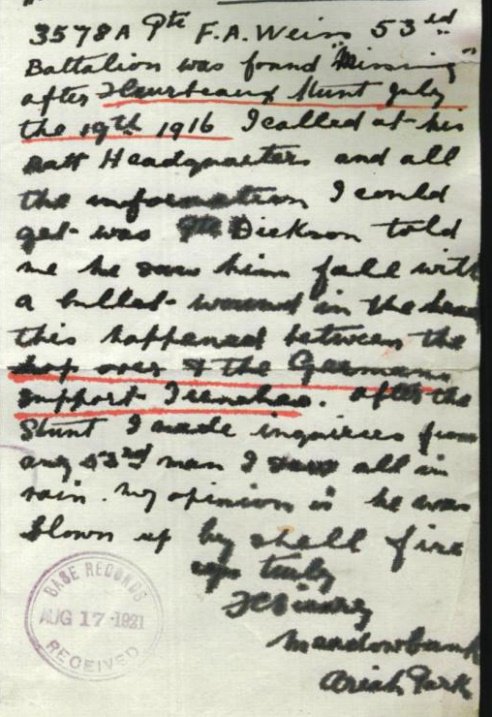 3578A Pte F.A. Weiss 53rd
Battalion was found "Missing"
after Fleurbeaux Stunt July
the 19th 1916 I called at his
Batt Headquarters and all
the information I could
get was Pte Dickson told
me he saw him fall with
a bullet wound in the head
this happened between the
hop over & the Germans
support Trenches. After the
Stunt I made inquiries from
any 53rd man I saw all in
vain. My opinion is he was
blown up by shell fire
truly
Meadowbank
Ariah Park
BASE RECORDS
AUG 17 1921
RECEIVED